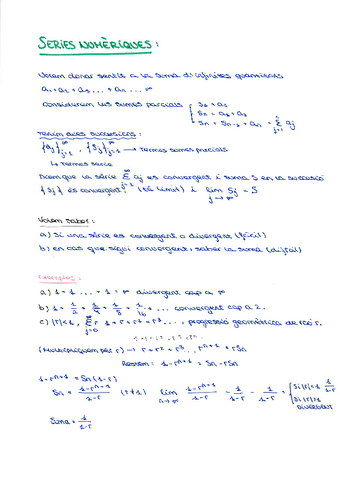 SERIES NUMÈRIQUES:
Volem donar sentit a la suma d'infinites quantitats
a₁+a₂+a₃...+aₙ...∞
Considerarem les sumes parcials { S₁ = a₁
S₂ = a₁+a₂
Sₙ = Sₙ₋₁ + aₙ = Σ aⱼ
Tenim dues successions:
{aⱼ}, {Sⱼ} → termes sumes parcials
↳ termes sèrie
Diem que la sèrie Σ aⱼ és convergent i suma S en la successió
{Sⱼ} és convergent (té límit) i lim Sⱼ = S
j→∞
Volem saber:
a) Si una sèrie és convergent o divergent (fàcil)
b) en cas que sigui convergent, saber la suma (difícil)
Exemples:
a) 1+1...+1 = ∞ divergent cap a ∞
b) 1+ 1/2 + 1/4 + 1/8 + 1/16 + ... convergent cap a 2.
c) |r|<1, Σ rʲ 1+r+r²+r³..., progressió geomètrica de raó r.
j=0
(Multipliquem per r) → r+r²+r³... rⁿ⁺¹ = rSₙ
Restem: 1-rⁿ⁺¹ = Sₙ-rSₙ
1-rⁿ⁺¹ = Sₙ(1-r)
Sₙ = (1-rⁿ⁺¹)/(1-r) (r≠1) lim (1-rⁿ⁺¹)/(1-r) = 1/(1-r) = { Si |r|<1 1/(1-r)
n→∞
Si |r|>1 DIVERGENT
Suma = 1/(1-r)